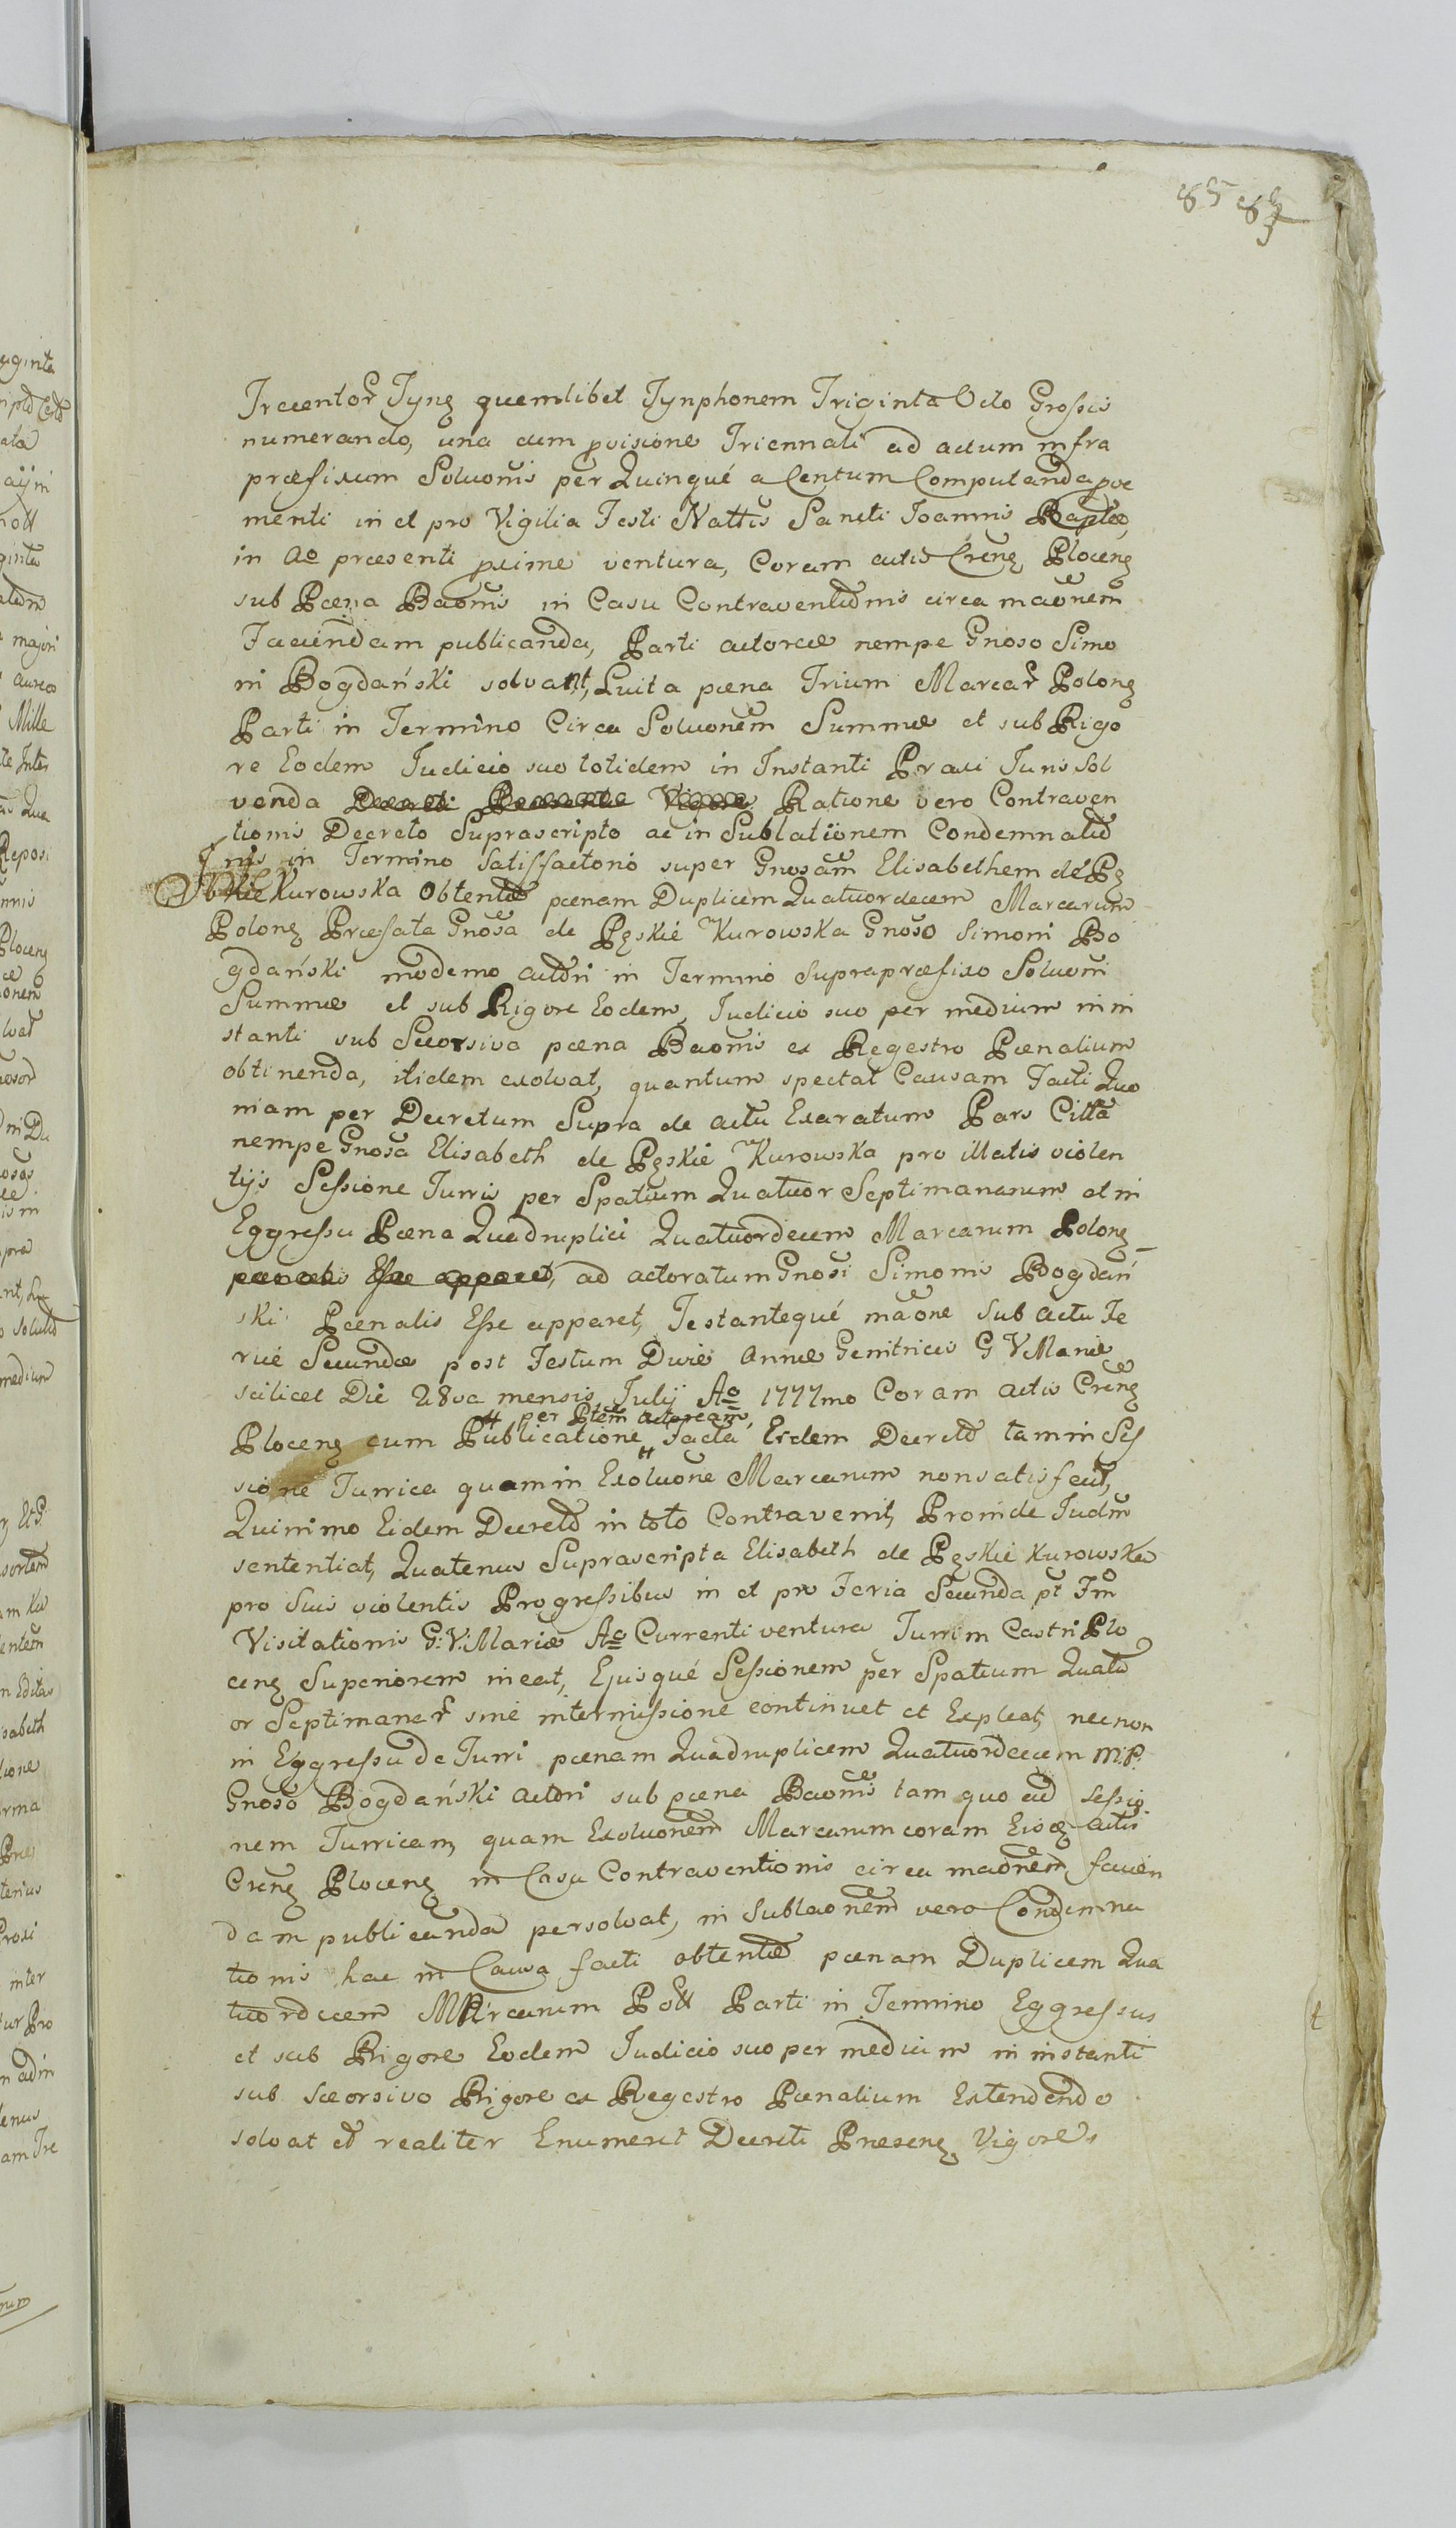 85 83
Trecentor Tynz quemlibet Tynphonem Triginta Octo Grossis
numerando, una cum pvisione Triennali ad actum infra
præfixum Soluonis per Quinqué a Centum Computanda pve
menti in et pro Vigilia Festi Nattis Sancti Joannis Baptæ,
in Ao præsenti pcime ventura, Coram actis Crenz Plocenz
sub Pœna Baonis in Casu Contraventionis circa maonem
Faciendam publicanda, Parti actoreæ nempe Gnoso Simo
ni Bogdański solvant, Luita pœna Trium Marcar Polonz
Parti in Termino Circa Soluonem Summæ et sub Rigo
re Eodem Judicio suo totidem in Instanti Praxi Juris Sol
venda Decreti Præsentis Vigore Ratione vero Contraven
tionis Decreto Suprascripto ac in Sublationem Condemnatio
nis in Termino Satisfactorio super Gnosam Elisabethem de Pę
skie Kurowska Obtentæ pœnam Duplicem Quatuordecem Marcarum
Polonz Præfata Gnosa de Pęskie Kurowska Gnoso Simoni Bo
gdański moderno actori in Termino Supraprӕfixo Soluonis
Summæ et sub Rigore Eodem, Judicio suo per medium in in
stanti sub Seorsiva pœna Baonis ex Regestro Pœnalium
obtinenda, itidem exolvat, quantum spectat Causam Facti Quo
niam per Decretum Supra de actu Exaratum Pars Citta
nempe Gnosa Elisabeth de Pęskie Kurowska pro illatis violen
tijs Sessione Turris per Spatium Quatuor Septimanarum et in
Eggressu Pœna Quadruplici Quatuordecem Marcarum Polonz
pœnalis Esse apparet, ad actoratum Gnosi Simonis Bogdań
ski Pœnalis Esse apparet, Testantequé maone sub actu Fe
riæ Secundæ post Festum Divæ Annæ Genitricis G V Mariæ
scilicet Die 28va mensis Julij Ao 1777mo Coram actis Crenz
# per Ptem actoream,
Plocenz cum Publicatione # facta Eidem Decreto tam in Ses
sione Turrica quam in Exoluone Marcarum non satisfecit,
Quinimo Eidem Decreto in toto Contravenit, Proinde Judm
sententiat, Quatenus Suprascripta Elisabeth de Pęskie Kurowska
pro Suis violentis Progressibus in et pro Feria Secunda pt Fm
Visitationis G: V: Mariæ Ao Currenti ventura Turrim Castri Plo
cenz Superiorem ineat, Ejusqué Sessionem per Spatium Quatu
or Septimanar sine intermissione continuet et Expleat, necnon
in Eggressu de Turri pœnam Quadruplicem Quatuordecem M.P.
Gnoso Bogdański Actori sub pœna Baonis tam quo ad Sessio
nem Turricam, quam Exoluonem Marcarum coram Eisdz actis
Crenz Plocenz in Casu Contraventionis circa maonem facien
dam publicanda persolvat, in Sublaonem vero Condemna
tionis hac in Causa facti obtentæ pœnam Duplicem Qua
tuordecem Marcarum Poll Parti in Termino Eggressus
et sub Rigore Eodem Judicio suo per medium in instanti
sub Seorsivo Rigore ex Regestro Pœnalium Extendendo
solvat et realiter Enumeret Decreti Præsenz Vigore